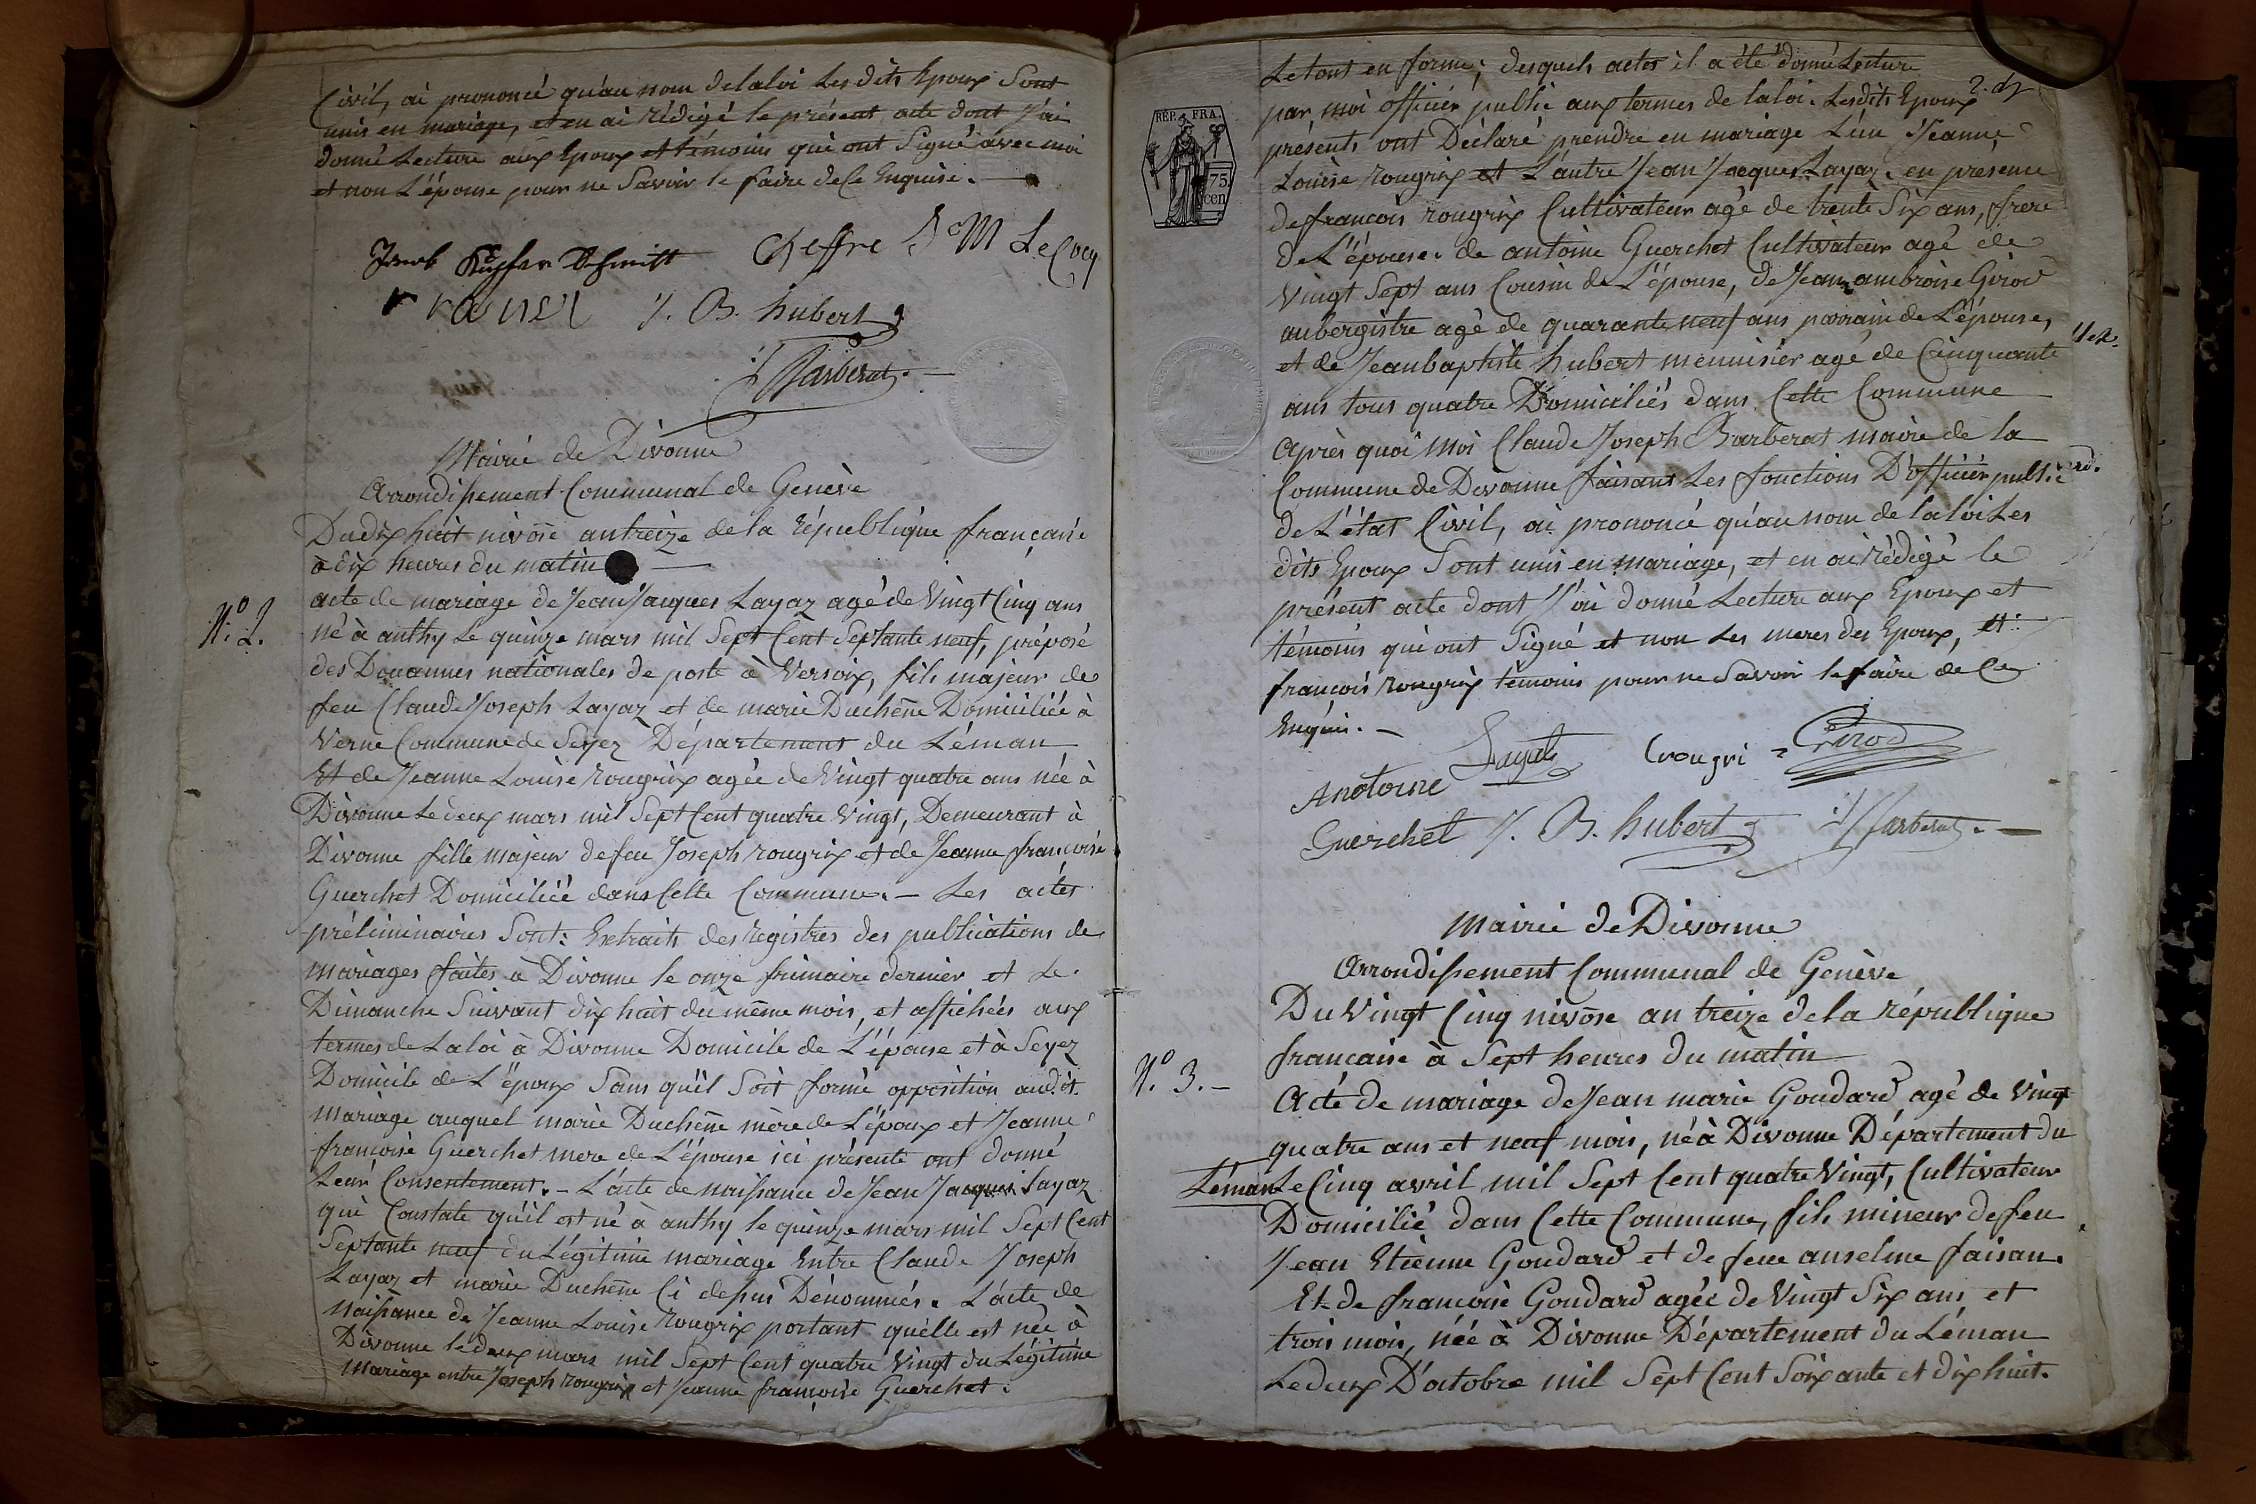 Civil, ai prononcé qu'au nom de la loi Les dits Epoux Sont
unis en mariage, et en ai rédigé le présent acte dont j'ai
donné Lecture aux Epoux et témoins qui ont Signé avec moi
et non L'épouse pour ne Savoir le faire de Ce Enquise. —
Jacob Schmitt Cheffre M LeCocq
J. B. hubert
Barberat. —
Mairie de Divonne
Arrondissement Communal de Genève
Du dix huit nivôse an treize de la République française
à dix heures du matin —
N.º 2.
acte de mariage de Jean Jacques Layaz agé de Vingt Cinq ans
né à anthy Le quinze mars mil Sept Cent Septante neuf, préposé
des Douannes nationales de poste à Versoix, fils majeur de
feu Claude Joseph Layaz et de marie Duchêne Domiciliée à
Verne Commune de Seyez Département du Léman
Et de Jeanne Louise rougrix agée de Vingt quatre ans née à
Divonne Le deux mars mil Sept Cent quatre Vingt, Demeurant à
Divonne fille majeur de feu Joseph rougrix et de Jeanne françoise
Guerchet Domiciliée dans Cette Commune. — Les actes
préliminaires Sont: Extraits des registres des publications de
mariages faites à Divonne le onze frimaire dernier et Le
Dimanche Suivant dix huit du même mois, et affichées aux
termes de La loi à Divonne Domicile de L'épouse et à Seyez
Domicile de L'époux Sans qu'il Soit formé opposition audit
mariage auquel marie Duchêne mère de L'époux et Jeanne
françoise Guerchet mere de L'épouse ici présente ont donné
Leur Consentement. — L'acte de naissance de Jean Jacques Layaz
qui Constate qu'il est né à anthy le quinze mars mil Sept Cent
Septante neuf du Légitime mariage Entre Claude Joseph
Layaz et marie Duchêne Ci dessus Dénommés. L'acte de
naissance de Jeanne Louise rougrix portant qu'elle est née à
Divonne le deux mars mil Sept Cent quatre Vingt du Légitime
mariage entre Joseph rougrix et Jeanne françoise Guerchet.
REP. FRA.
75.
cen
Le tout en forme; desquels actes il a été donné Lecture
par moi officier public aux termes de la loi. Les dits Epoux
présents ont Déclaré prendre en mariage L'un Jeanne
Louise rougrix et L'autre Jean Jacques Layaz. en présence
de françois rougrix Cultivateur agé de trente Six ans, frere
de L'épouse. de antoine Guerchet Cultivateur agé de
Vingt Sept ans Cousin de L'épouse, de Jean ambroise Girod
aubergiste agé de quarante neuf ans parrain de L'épouse,
et de Jean baptiste hubert menuisier agé de Cinquante
ans tous quatre Domiciliés dans Cette Commune
Après quoi Moi Claude Joseph Barberat maire de la
Commune de Divonne faisant Les fonctions D'officier public
de L'état Civil, ai prononcé qu'au nom de la loi Les
dits Epoux Sont unis en mariage, et en ai rédigé le
présent acte dont J'ai donné Lecture aux Epoux et
témoins qui ont Signé et non Les meres des Epoux, et
françois rougrix témoins pour ne Savoir le faire de Ce
Enquis. —
Layat Crougri Girod
Anotoine
Guerchet J. B. hubert Barberat. —
Mairie de Divonne
Arrondissement Communal de Genève
Du Vingt Cinq nivôse an treize de la République
française à Sept heures du matin
N.º 3. —
Acte de mariage de Jean marie Goudard agé de Vingt
quatre ans et neuf mois, né à Divonne Département du
Léman Le Cinq avril mil Sept Cent quatre Vingt, Cultivateur
Domicilié dans Cette Commune, fils mineur de feu
Jean Etienne Goudard et de feue anselme faisan.
Et de françoise Goudard agée de Vingt Six ans et
trois mois, née à Divonne Département du Léman
Le deux D'octobre mil Sept Cent Soixante et dix huit.